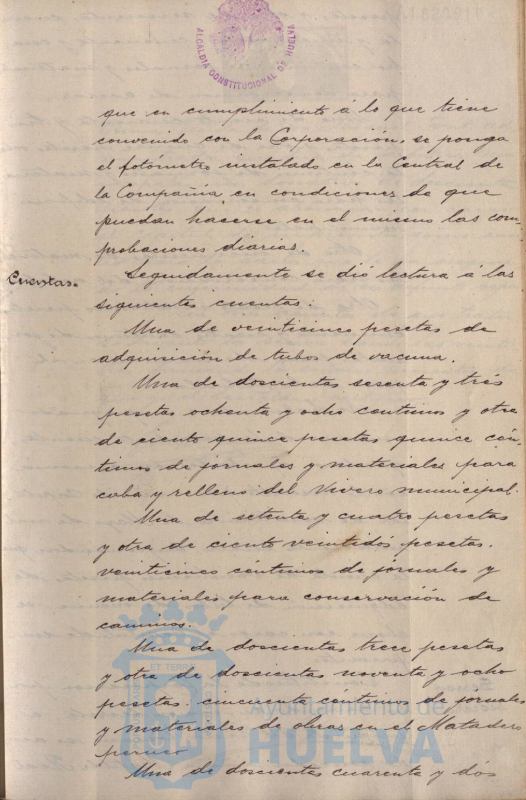 ALCALDIA CONSTITUCIONAL DE HUELVA
que en cumplimiento á lo que tiene
convenido con la Corporación, se ponga
el fotómetro instalado en la Central de
la Compañia en condiciones de que
puedan hacerse en el mismo las com-
probaciones diarias.
Cuentas.
Seguidamente se dió lectura á las
siguientes cuentas:
Una de veinticinco pesetas de
adquisición de tubos de vacuna.
Una de doscientas sesenta y tres
pesetas ochenta y ocho centimos y otra
de ciento quince pesetas quince cén-
timos de jornales y materiales para
caba y relleno del Vivero municipal.
Una de setenta y cuatro pesetas
y otra de ciento veintidós pesetas.
veinticinco céntimos de jornales y
materiales para conservación de
caminos.
Una de doscientas trece pesetas
y otra de doscientas noventa y ocho
pesetas cincuenta céntimos de jornales
y materiales de obras en el Matadero
Una de doscientas cuarenta y dós
Ayuntamiento de
HUELVA